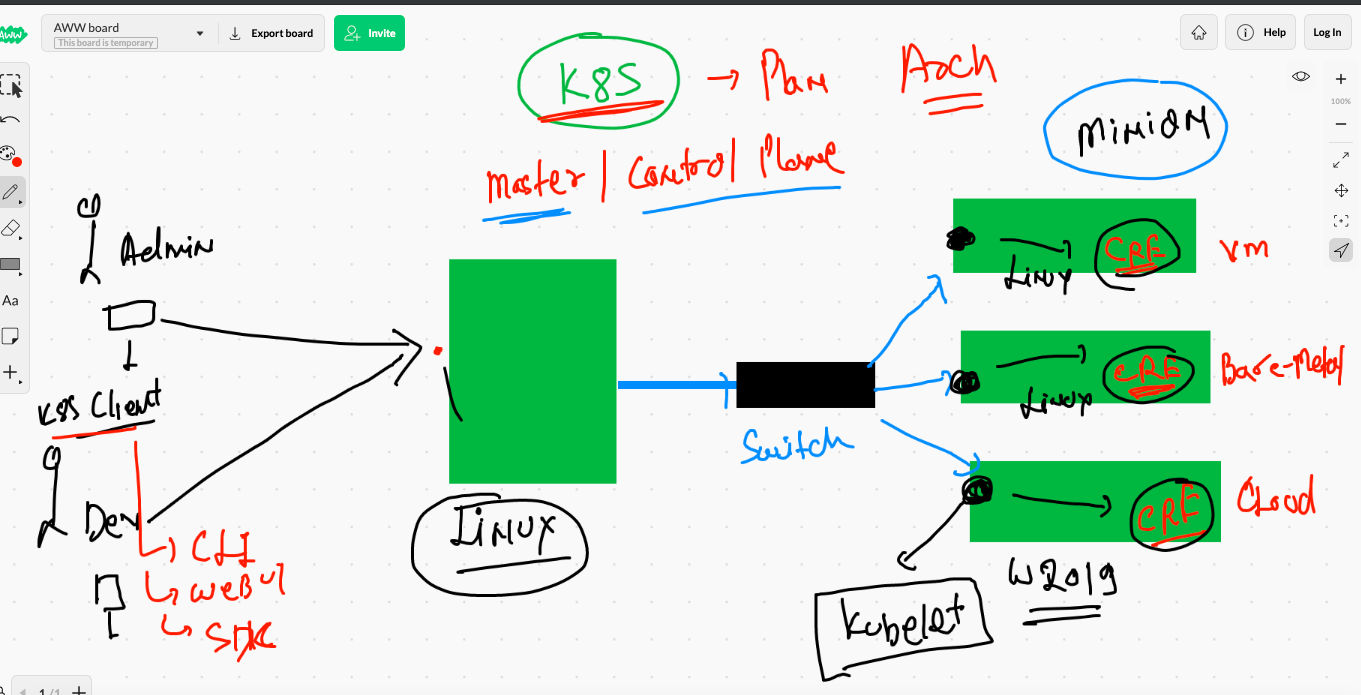 AWW
AWW board
This board is temporary
Export board
Invite
Help
Log In
100%
Aa
K8S → Plan
Arch
Minion
Master | Control Plane
Admin
K8S Client
Den
CLI
WEBUI
SDK
Linux
Switch
CRE
Linux
VM
CRE
Linux
Bare-Metal
CRE
Cloud
W2019
Kubelet
1/1